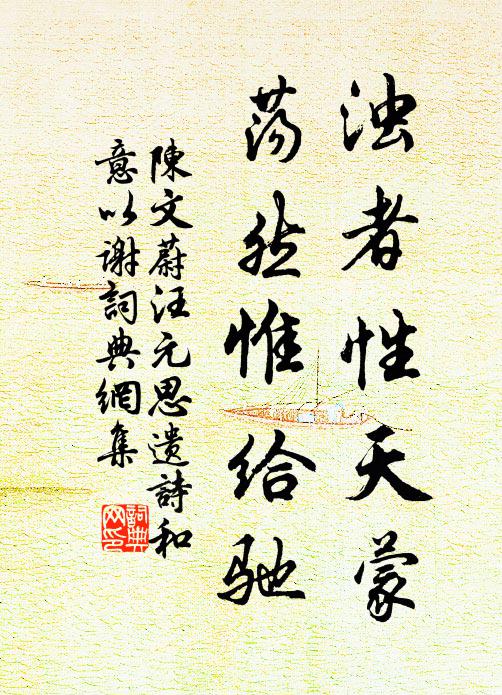 浊者性天蒙
荡然惟给驰
陳文蔚汪元思遗詩和
意以谢詞典網集
詞典网印